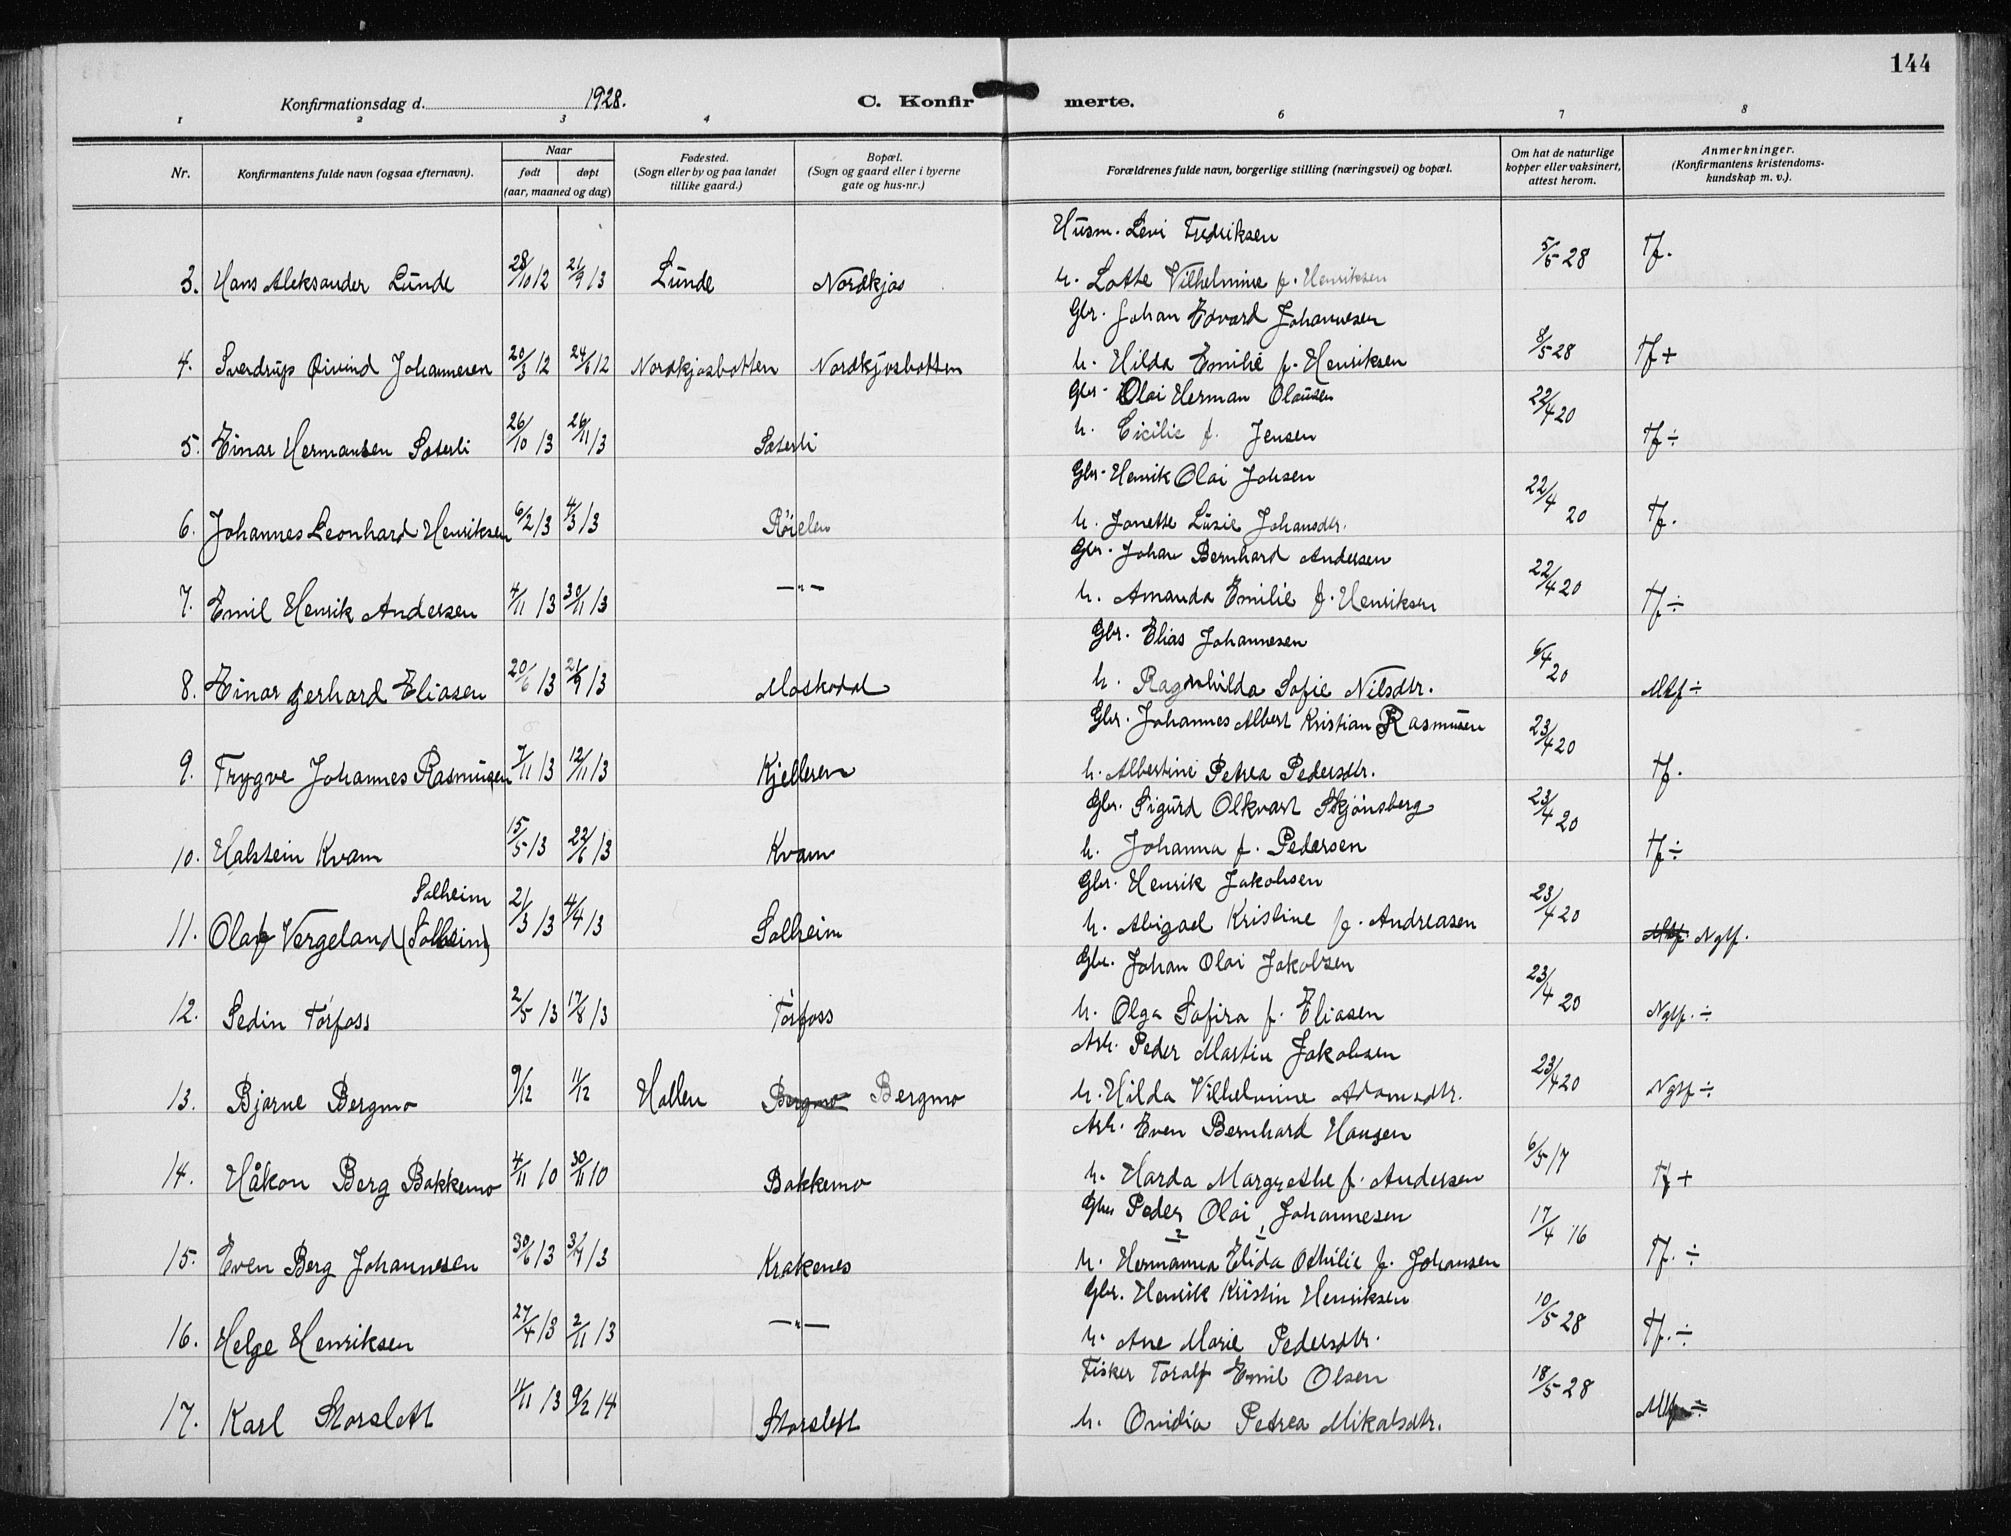 144
Konfirmationsdag d. 1928. C. Konfirmerte.
1 2 3 4 6 7 8
Nr. Konfirmantens fulde navn (ogsaa efternavn). Naar født døpt (aar, maaned og dag) Fødested. (Sogn eller by og paa landet tillike gaard.) Bopæl. (Sogn og gaard eller i byerne gate og hus-nr.) Forældrenes fulde navn, borgerlige stilling (næringsvei) og bopæl. Om hat de naturlige kopper eller vaksinert, attest herom. Anmerkninger. (Konfirmantens kristendoms-kundskap m. v.).
Husm. Levi Fredriksen
3. Hans Aleksander Lunde 28/10 12 21/9 13 Lunde Nordkjos h. Lotte Vilhelmine f. Henriksen 5/5 28 Tf.
Gbr. Johan Edvard Johannesen
4. Sverdrup Øivind Johannesen 20/3 12 24/6 12 Nordkjosbotten Nordkjosbotten h. Hilda Emilie f. Henriksen 8/5 28 Tf +
Gbr. Olai Herman Olausen
5. Einar Hermansen Sæterli 26/10 13 26/11 13 Sæterli h. Cicilie f. Jensen 22/4 20 Tf ÷
Gbr. Henrik Olai Johsen
6. Johannes Leonhard Henriksen 6/2 13 4/3 13 Röielen h. Jonette Lusie Johansdtr. 22/4 20 Tf.
Gbr. Johan Bernhard Andersen
7. Emil Henrik Andersen 4/11 13 30/11 13 —"— h. Amanda Emilie f. Henriksen 22/4 20 Tf ÷
Gbr. Elias Johannesen
8. Einar Gerhard Eliasen 20/6 13 21/9 13 Moskodal h. Ragnhilda Sofie Nilsdtr. 6/4 20 Mtf ÷
Gbr. Johannes Albert Kristian Rasmusen
9. Trygve Johannes Rasmusen 7/11 13 12/11 13 Kjelleren h. Albertine Petrea Pedersdtr. 23/4 20 Tf.
Gbr. Sigurd Olkvart Skjönsberg
10. Halstein Kvam 15/5 13 22/6 13 Kvam h. Johanna f. Pedersen 23/4 20 Tf ÷
Solheim Gbr. Henrik Jakobsen
11. Olaf Vergeland (Solheim) 21/3 13 4/4 13 Solheim h. Abigael Kristine f. Andreasen 23/4 20 Mtf. Ngtf.
Gbr. Johan Olai Jakobsen
12. Sedin Törfoss 2/5 13 17/8 13 Törfoss h. Olga Safira f. Eliasen 23/4 20 Ngtf. ÷
Arb. Peder Martin Jakobsen
13. Bjarne Bergmo 9/12 11/12 Hollen Bergmo Bergmo h. Hilda Vilhelmine Adamsdtr. 23/4 20 Ngtf ÷
Arb. Even Bernhard Hansen
14. Håkon Berg Bakkemo 4/11 10 30/11 10 Bakkemo h. Harda Margrethe f. Andersen 6/5 17 Tf +
Gbr Peder Olai Johannesen
15. Even Berg Johannesen 30/6 13 31/7 13 Krakenes h. Hermanna Elida Othilie f. Johansen 17/4 16 Tf. ÷
Gbr. Henrik Kristin Henriksen
16. Helge Henriksen 27/4 13 2/11 13 —"— h. Ane Marie Pedersdtr. 10/5 28 Tf. ÷
Fisker Toralf Emil Olsen
17. Karl Storslett 11/11 13 9/2 14 Storslett h. Ovidia Petrea Mikalsdtr. 18/5 28 ÷